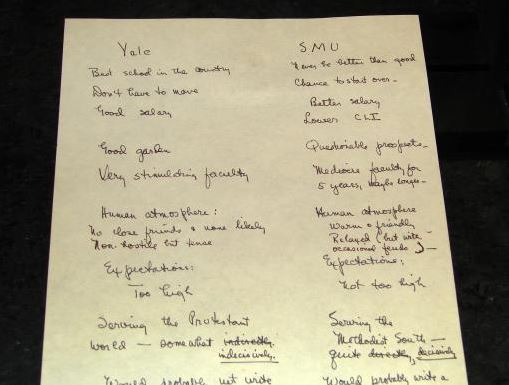 Yale
Best school in the country
Don't have to move
Good salary
Good garden
Very stimulating faculty
Human atmosphere:
No close friends & none likely
Non-hostile but tense
Expectations:
Too high
Serving the Protestant
world — somewhat indirectly
indecisively.
Would probably not write
SMU
Never be better than good
Chance to start over -
Better salary
Lower CLI
Questionable prospects -
Mediocre faculty for
5 years, maybe longer -
Human atmosphere
Warm & friendly
Relaxed (but with
occasional feuds) -
Expectations:
Not too high
Serving the
Methodist South —
quite directly, decisively
Would probably write a